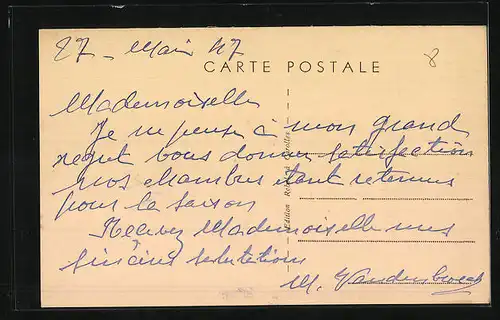 27 - Mai 47
CARTE POSTALE
8
Mademoiselle
Je ne peux à mon grand
regret vous donner satisfaction
nos chambres étant retenues
pour la saison
Recevez Mademoiselle mes
sincères salutations
M.
Edition